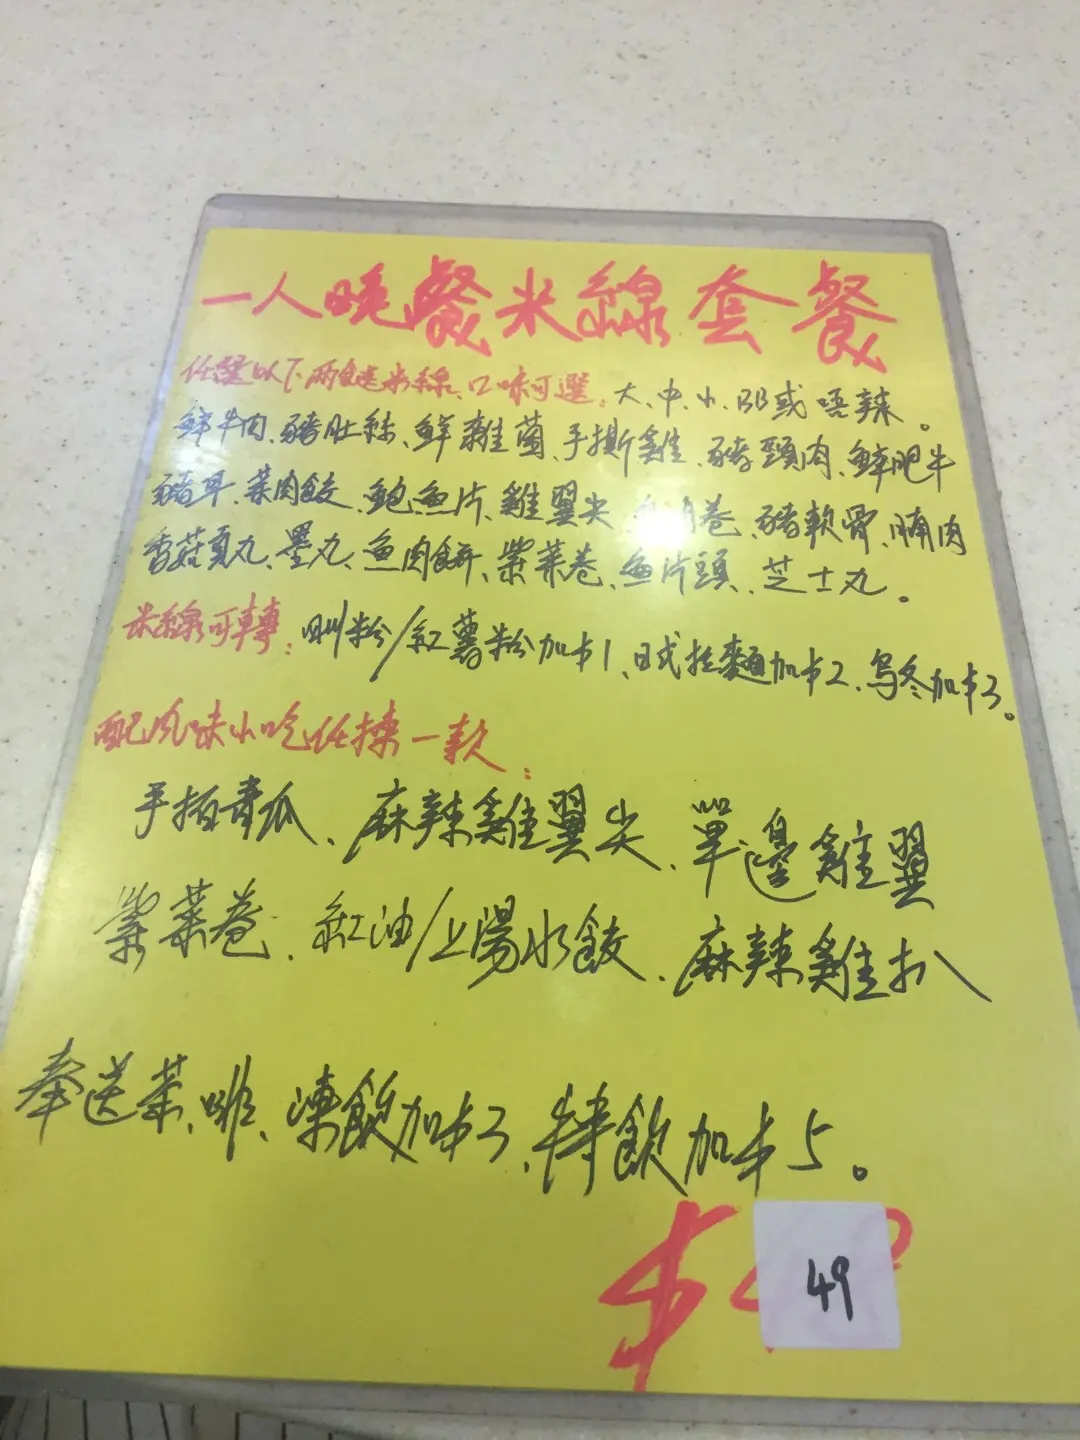 一人晚餐米線套餐
任選以下兩餸米線,口味可選:大、中、小、BB或唔辣。
鮮牛肉、豬肚絲、鮮雞菌、手撕雞、豬頸肉、鮮肥牛
豬耳、菜肉餃、鮑魚片、雞翼尖、卷、豬軟骨、腩肉
香菇貢丸、墨丸、魚肉餅、紫菜卷、魚片頭、芝士丸。
米線可轉:粉/紅薯粉加$1、日式拉麵加$2、烏冬加$3。
配風味小吃任揀一款:
手拍青瓜、麻辣雞翼尖、單邊雞翼
紫菜卷、紅油/上湯水餃、麻辣雞扒
奉送茶、啡、凍飲加$3、特飲加$5。
$
49